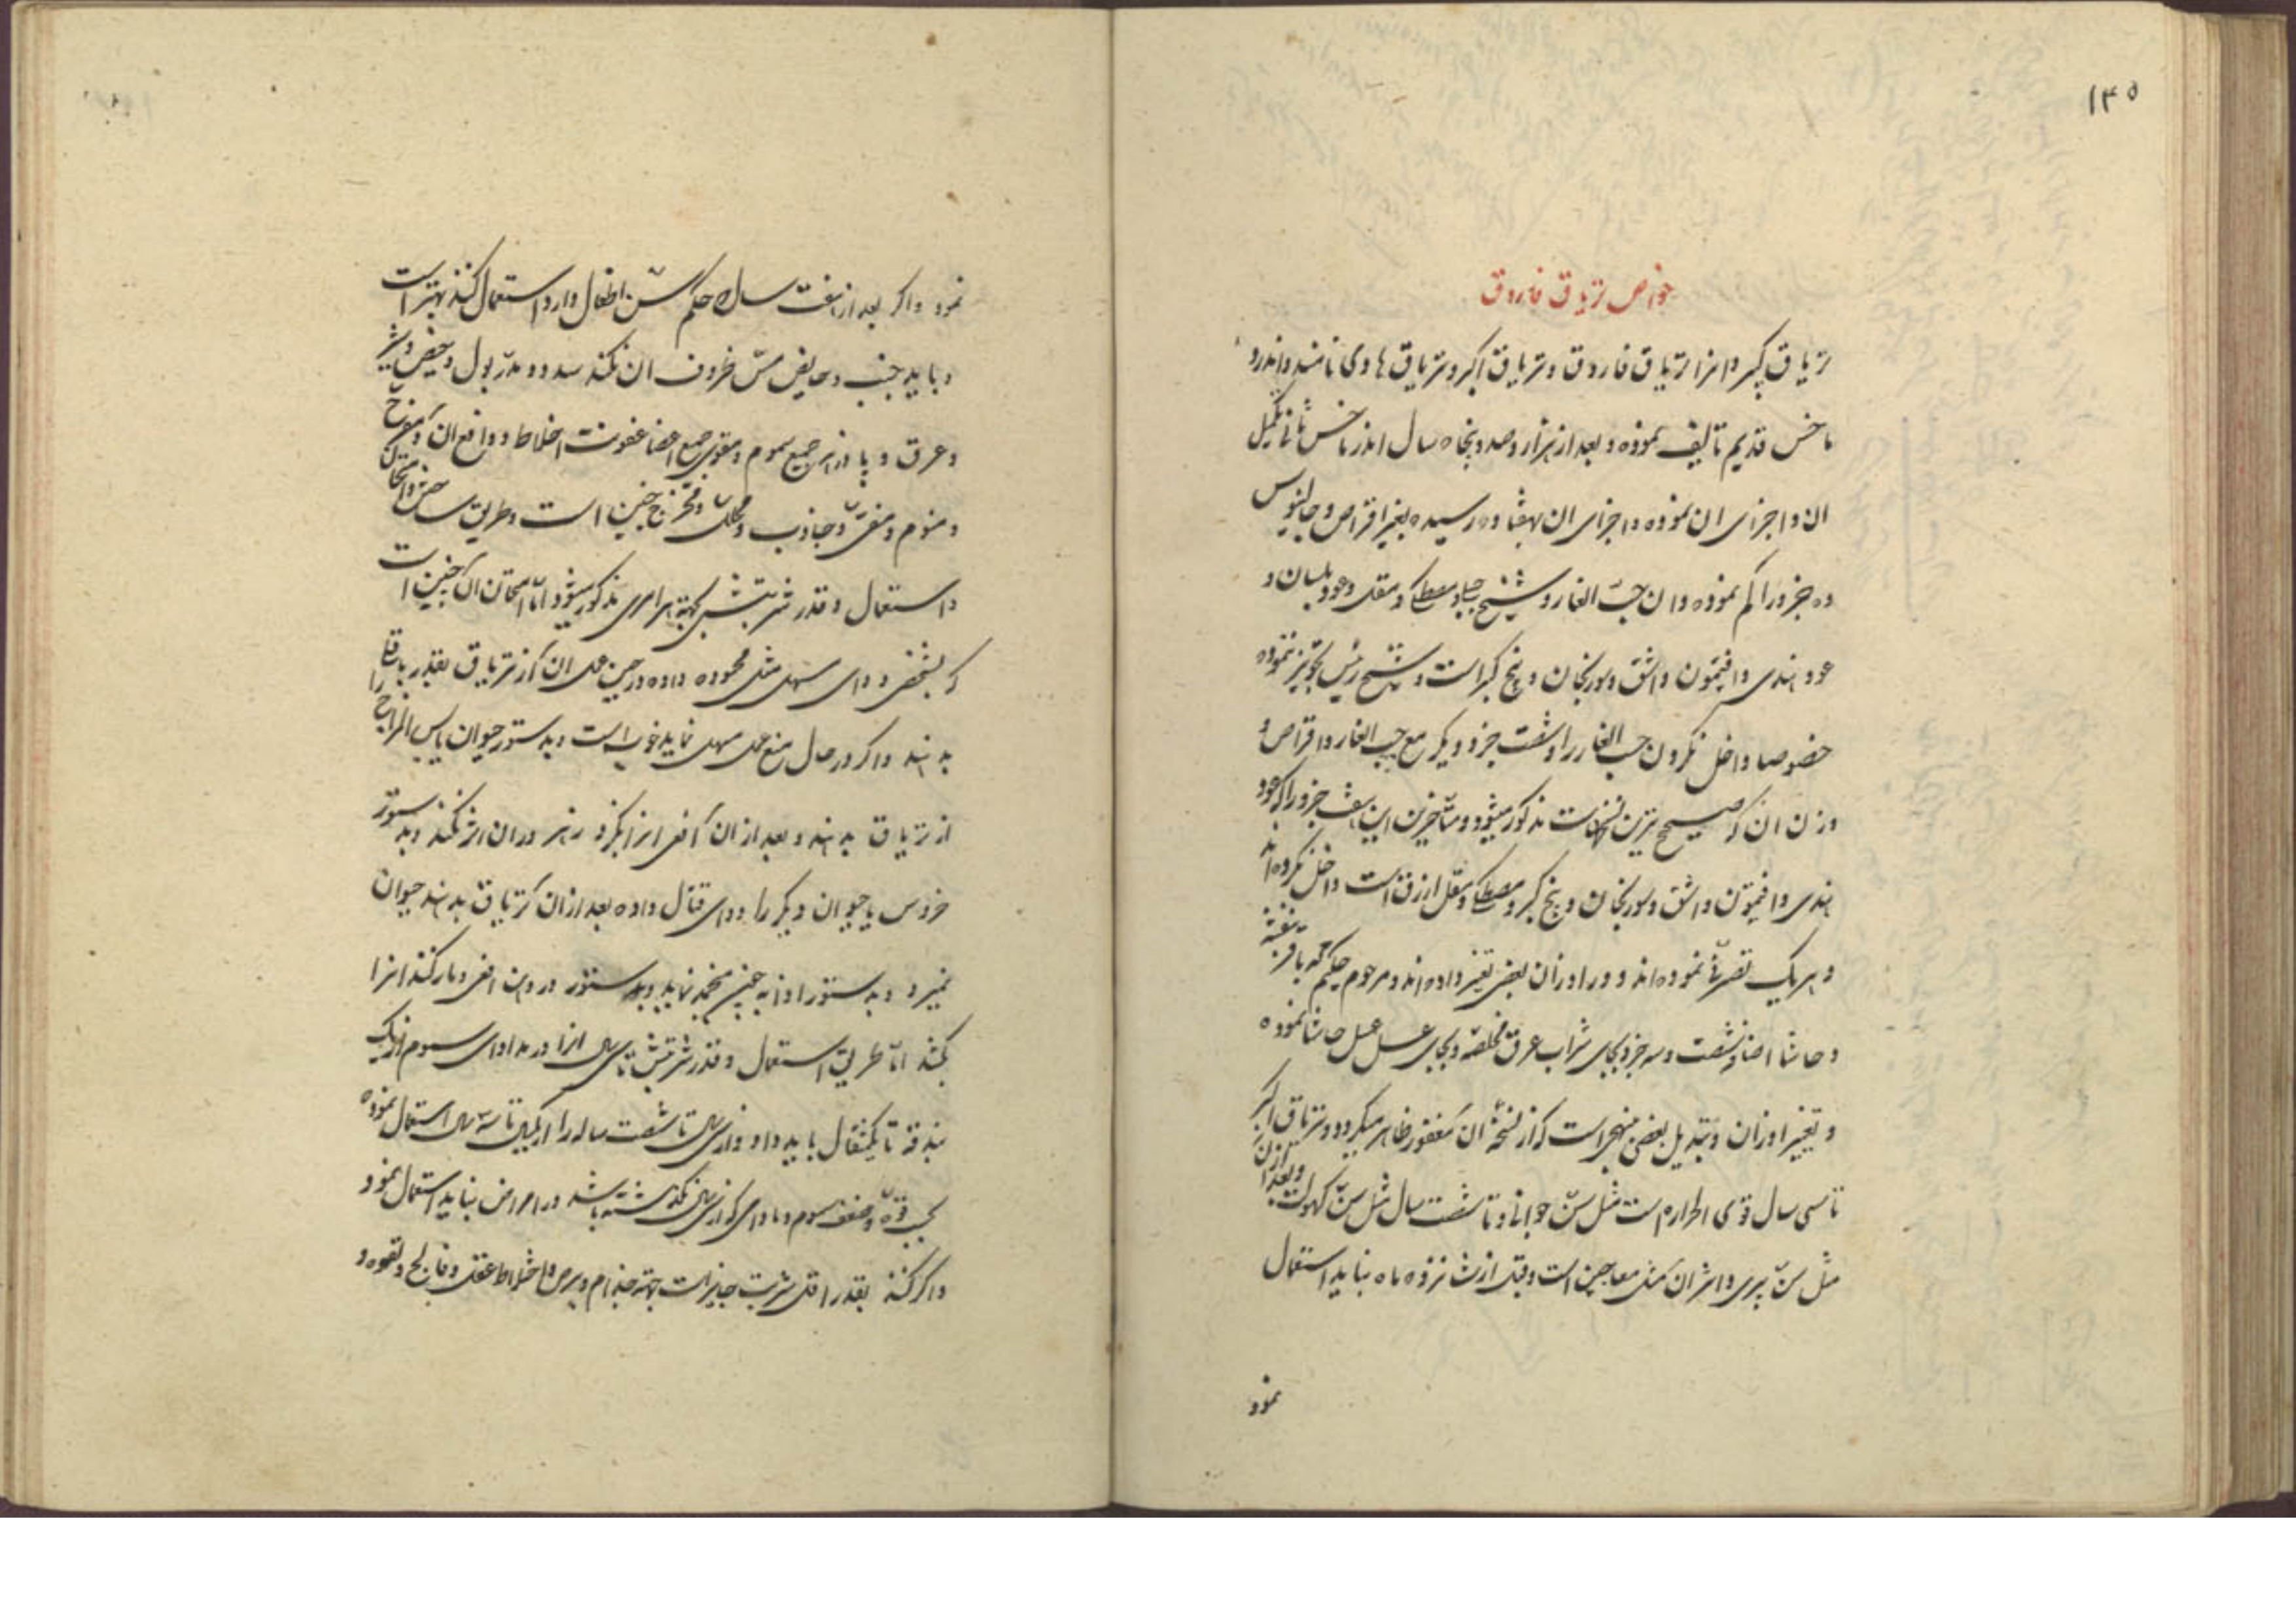 ۱۳۵
خواص تریاق فاروق
تریاق کبیر و انرا تریاق فاروق و تریاق اکبر و تریاق هادی نامند و اندرو
ماخس قدیم تالیف نموده و بعد از هزار و صد و پنجاه سال اندر ماخس ثانی تکمیل
ان و اجزای ان نموده و اجزای ان بهفتاد و رسیده بغیر اقراص و جالینوس
ده جزو را کم نموده و ان حب الغار و شیح جبلی و مصطکی و مقل و عود بلسان و
عود هندی و افیتمون و اشق و سورنجان و بیخ کبر است و شیخ رئیس تجویز ننموده
خصوصا داخل نکردن حب الغار را و شصت جزو دیکر مع حب الغار و اقراص و
وزن ان که صحیح ترین نسخهاست مذکور میشود و متاخرین این هفت جزو را که عود
هندی و افیتمون و اشق و سورنجان و بیخ کبر و مصطکی و مقل ازرق است داخل نکرده اند
و هر یک تصرفی نموده اند و در اوزان بعضی تغییر داده اند و مرحوم حکیم محمد باقر بنفشه
و حاشا اضافه شصت و سه جزو بجای شراب عرق مخلصه و بجای عسل عسل حاشا نموده
و تغییر اوزان و تبدیل بعضی منهج است که از نسخه ان مغفور ظاهر میکردد و تریاق اکبر
تا سی سال قوی الحراره است مثل سن جوانی و تا شصت سال مثل سن کهولت و بعد از ان
مثل سن پیری و اثر ان مثل معاجین است و قبل از شانزده ماه نباید استعمال
نمود
نمود و اکر بعد از هفت سال که حکم سن اطفال دارد استعمال کنند بهتر است
و باید جنب و حایض مس ظروف ان نکند سدد و مدر بول و حیض و شیر
و عرق و پادزهر جمیع سموم و مقوی جمیع اعضا عفونت اخلاط و دافع ان و مفرح
و منوم و منقی و جاذب و محلل و مخرج جنین است و طریق ساختن و امتحان
و استعمال و قدر شربتش بجهة هر امری مذکور میشود اما امتحان ان چنین است
که بشخصی دوای مسهل مثل محموده داده در حین عمل ان از تریاق بقدر باقلا
بدهند و اکر در حال منع عمل مسهل نماید خوب است و بدستور حیوان یابس المزاج را
از تریاق بدهند و بعد از ان افعی انرا بکزد زهر در ان اثر نکند و بدستور
خروس یا حیوان دیکر را دوای قتال داده بعد از ان تریاق بدهند حیوان
نمیرد و بدستور او انه جنین منجمد نماید و بدستور در دهن افعی و مار کنند انرا
بکشد اما طریق استعمال و قدر شربتش تا سی سال انرا در مداوای سموم از یک
بندقه تا یکمثقال باید داد و از سی سال تا شصت ساله را از یکسال تا سه سال استعمال نموده
بحسب قوة و ضعف سموم و مادامی که از سی سال نکذشته باشد در امراض نباید استعمال نمود
و اکر کنند بقدر اقل شربت جایز است بجهة جذام و برص و اختلاط عقل و فالج و لقوه و